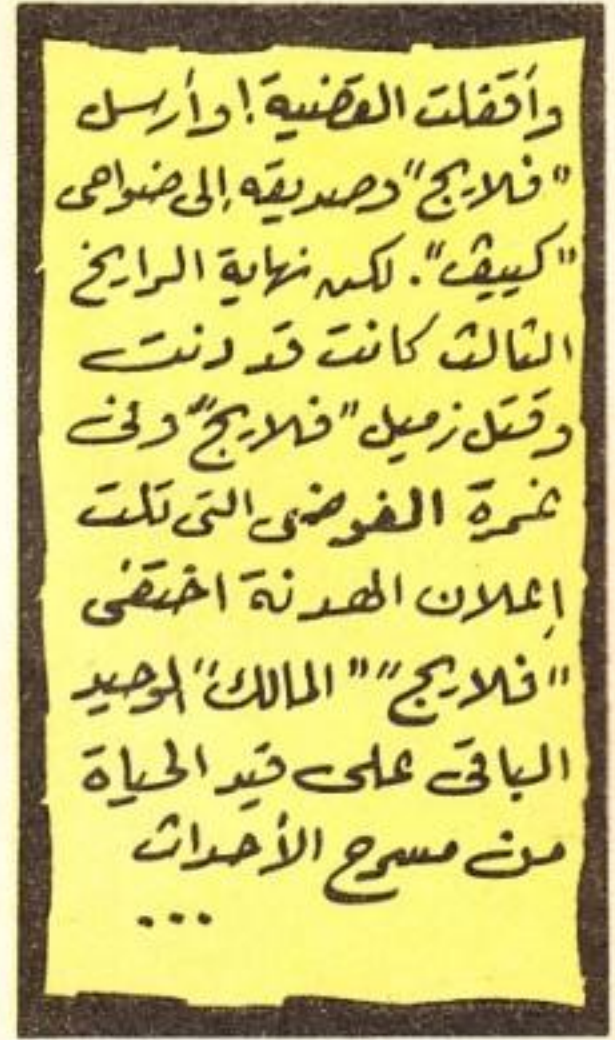 وأقفلت القضية! وأرسل
"فلايج" وصديقه إلى ضواحى
"كييڤ". لكن نهاية الرايخ
الثالث كانت قد دنت
وقتل زميل "فلايج" وفى
غمرة الفوضى التى تلت
إعلان الهدنة اختفى
"فلايج" "المالك" الوحيد
الباقى على قيد الحياة
من مسرح الأحداث
...